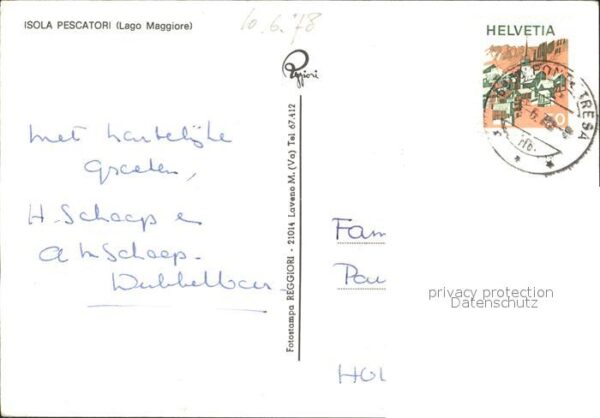 ISOLA PESCATORI (Lago Maggiore)
10.6.78
Reggiori
HELVETIA
PONTE TRESA
met hartelijke
groeten,
H. Schaap en
A M Schaap-
Dubbelboer
Fotostampa REGGIORI - 21014 Laveno M. (Va) Tel. 67.412
Fam
Pau
HOL
privacy protection
Datenschutz